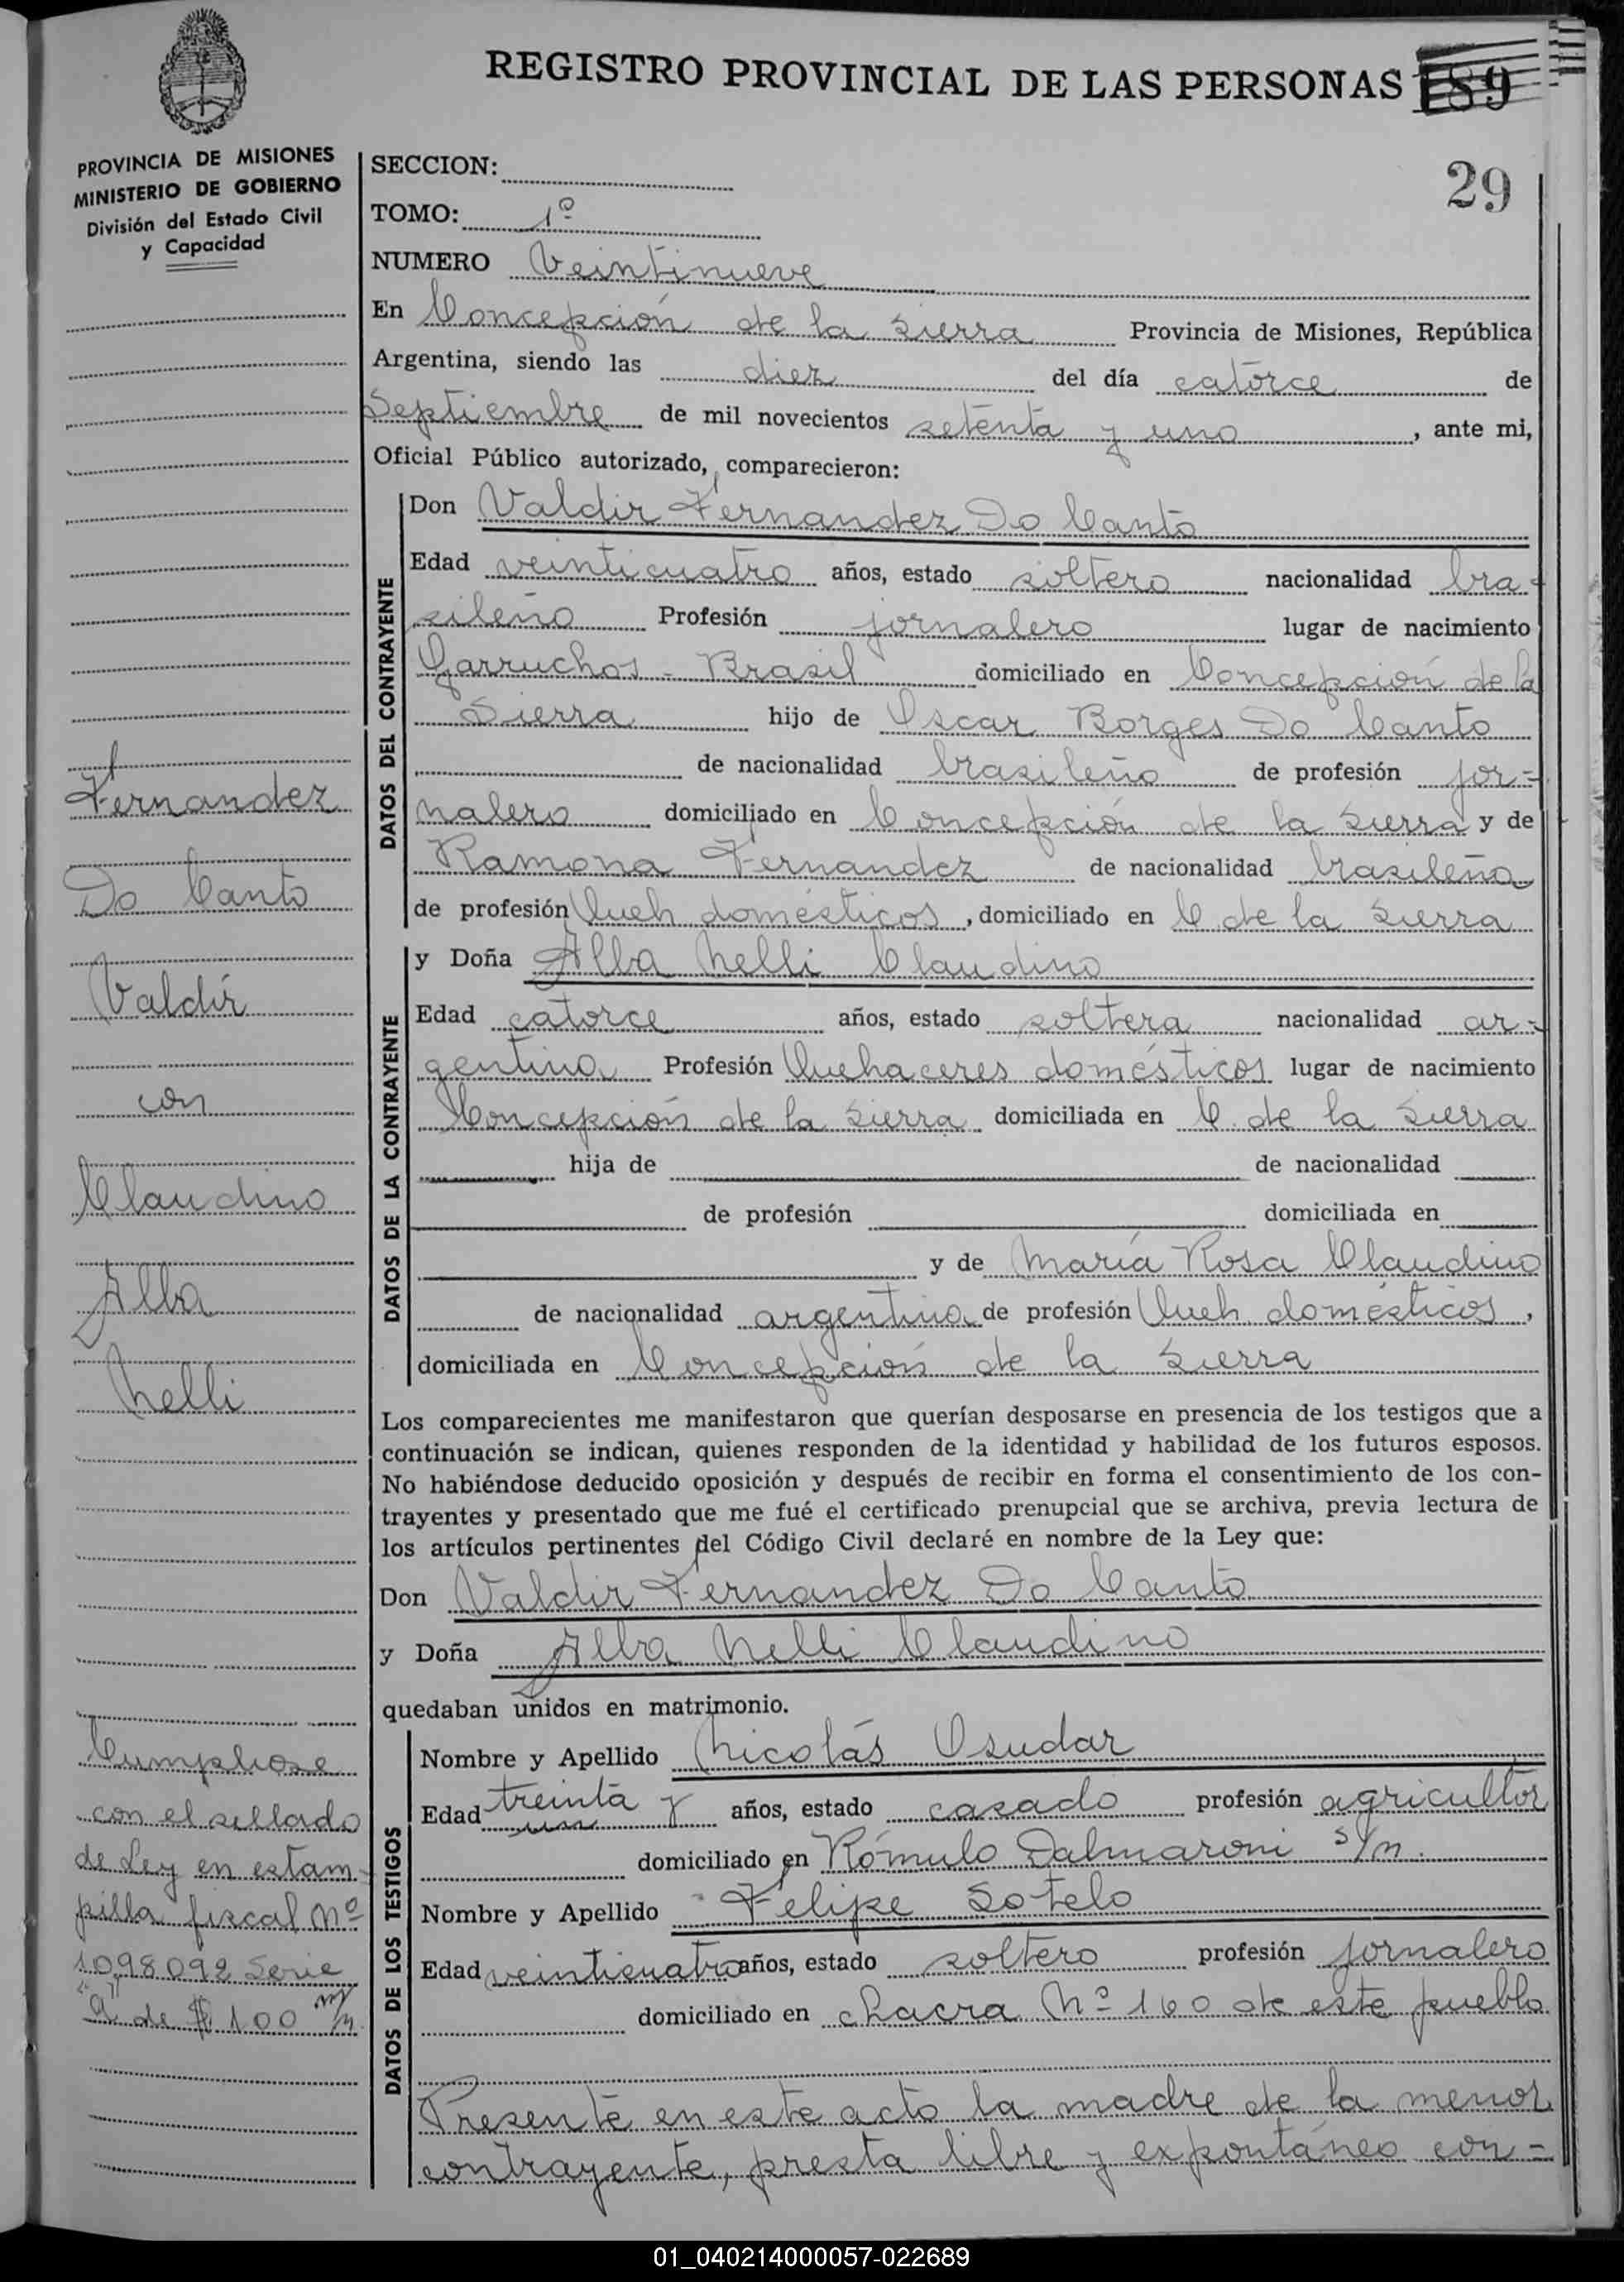 REGISTRO PROVINCIAL DE LAS PERSONAS 189
PROVINCIA DE MISIONES
MINISTERIO DE GOBIERNO
División del Estado Civil
y Capacidad
29
SECCION:
TOMO: 1º
NUMERO Veintinueve
En Concepción de la Sierra Provincia de Misiones, República
Argentina, siendo las diez del día catorce de
Septiembre de mil novecientos setenta y uno, ante mi,
Oficial Público autorizado, comparecieron:
DATOS DEL CONTRAYENTE
Don Valdir Fernandez Do Canto
Edad veinticuatro años, estado soltero nacionalidad bra-
sileño Profesión jornalero lugar de nacimiento
Garruchos - Brasil domiciliado en Concepción de la
Sierra hijo de Oscar Borges Do Canto
de nacionalidad brasileño de profesión jor=
nalero domiciliado en Concepción de la Sierra y de
Ramona Fernandez de nacionalidad brasileña
de profesión Queh domésticos, domiciliado en C de la Sierra
DATOS DE LA CONTRAYENTE
y Doña Alba Nelli Claudino
Edad catorce años, estado soltera nacionalidad ar-
gentina Profesión Quehaceres domésticos lugar de nacimiento
Concepción de la Sierra domiciliada en C. de la Sierra
hija de de nacionalidad
de profesión domiciliada en
y de María Rosa Claudino
de nacionalidad argentina de profesión Queh domésticos,
domiciliada en Concepción de la Sierra
Los comparecientes me manifestaron que querían desposarse en presencia de los testigos que a
continuación se indican, quienes responden de la identidad y habilidad de los futuros esposos.
No habiéndose deducido oposición y después de recibir en forma el consentimiento de los con-
trayentes y presentado que me fué el certificado prenupcial que se archiva, previa lectura de
los artículos pertinentes del Código Civil declaré en nombre de la Ley que:
Don Valdir Fernandez Do Canto
y Doña Alba Nelli Claudino
quedaban unidos en matrimonio.
DATOS DE LOS TESTIGOS
Nombre y Apellido Nicolás Osudar
Edad treinta y un años, estado casado profesión agricultor
domiciliado en Rómulo Dalmaroni s/n.
Nombre y Apellido Felipe Sotelo
Edad veinticuatro años, estado soltero profesión jornalero
domiciliado en chacra Nº 160 de este pueblo
Presente en este acto la madre de la menor
contrayente, presta libre y expontáneo con-
Fernandez
Do Canto
Valdir
con
Claudino
Alba
Nelli
Cumpliose
con el sellado
de Ley en estam-
pilla fiscal Nº
1098092 Serie
"a" de $ 100 m/n.
01_040214000057-022689